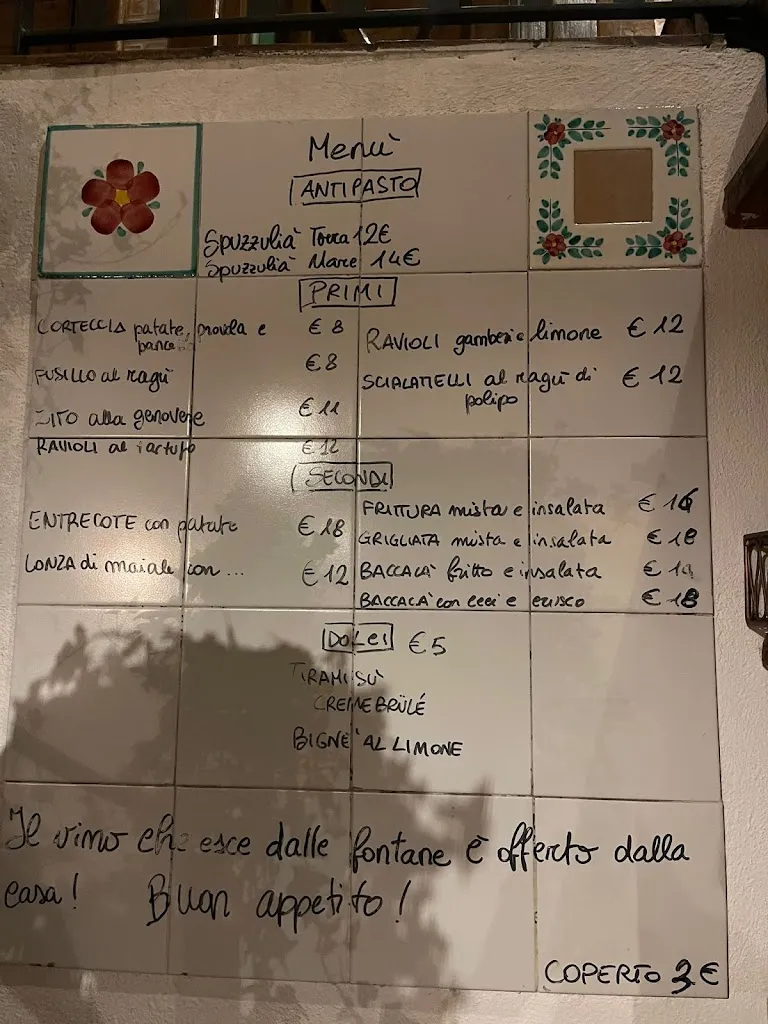 Menù
ANTIPASTO
Spuzzulià Terra 12€
Spuzzulià Mare 14€
PRIMI
CORTECCIA patate, provola e € 8
panc
FUSILLO al ragù € 8
ZITO alla genovese € 11
RAVIOLI al tartufo € 12
RAVIOLI gamberi e limone € 12
SCIALATIELLI al ragù di € 12
polipo
SECONDI
ENTRECOTE con patate € 18
LONZA di maiale con ... € 12
FRITTURA mista e insalata € 16
GRIGLIATA mista e insalata € 18
BACCALÀ fritto e insalata €
BACCALÀ con ceci e € 18
DOLCI € 5
TIRAMISÙ
CREME BRÜLÉ
BIGNE' AL LIMONE
Il vino che esce dalle fontane è offerto dalla
casa! Buon appetito!
COPERTO 3 €